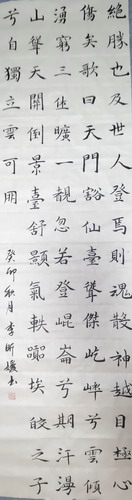 絕勝也及世人登焉則魂散神越目極心
傷矣歌曰天門豁仙臺聳傑屹崒兮雲傾
湧窮三休曠一觀忽若登崐崙兮期汗漫
山聳天關倒景臺舒顥氣軼囂埃皎皎之子
兮自獨立雲可用
癸卯秋月李昕媛書